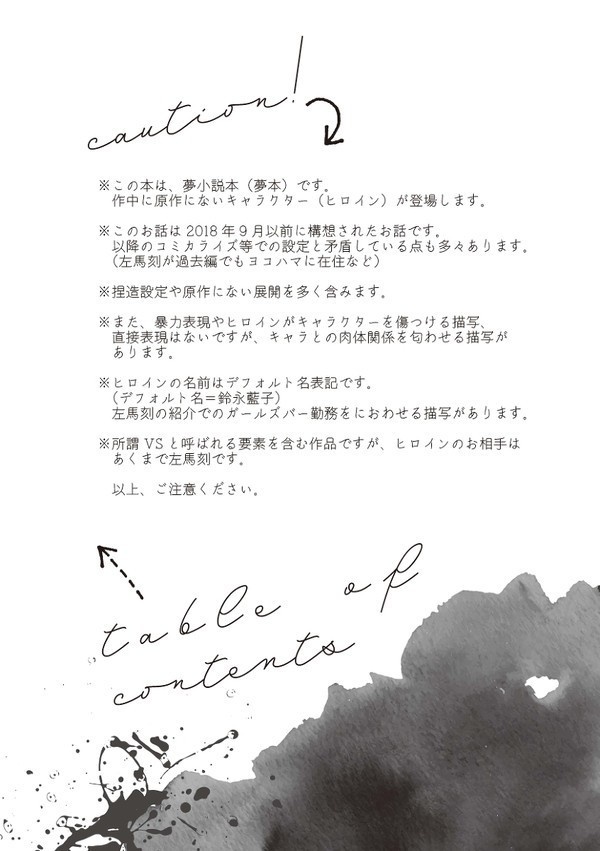 caution!
※この本は、夢小説本（夢本）です。
作中に原作にないキャラクター（ヒロイン）が登場します。
※このお話は 2018 年 9 月以前に構想されたお話です。
以降のコミカライズ等での設定と矛盾している点も多々あります。
（左馬刻が過去編でもヨコハマに在住など）
※捏造設定や原作にない展開を多く含みます。
※また、暴力表現やヒロインがキャラクターを傷つける描写、
直接表現はないですが、キャラとの肉体関係を匂わせる描写が
あります。
※ヒロインの名前はデフォルト名表記です。
（デフォルト名＝鈴永藍子）
左馬刻の紹介でのガールズバー勤務をにおわせる描写があります。
※所謂 VS と呼ばれる要素を含む作品ですが、ヒロインのお相手は
あくまで左馬刻です。
以上、ご注意ください。
table of
contents